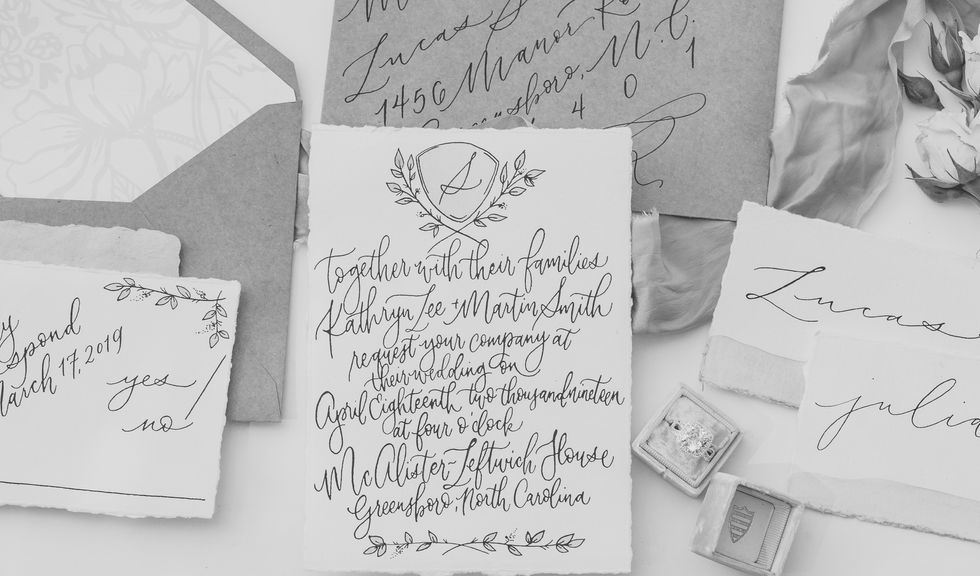 Lucas S
1456 Manor
N.C.
4 0 1
S
together with their families
Kathryn Lee + Martin Smith
request your company at
their wedding on
April Eighteenth two thousand nineteen
at four o'clock
McAlister-Leftwich House
Greensboro, North Carolina
spond
March 17, 2019
yes
no
Lucas
julia